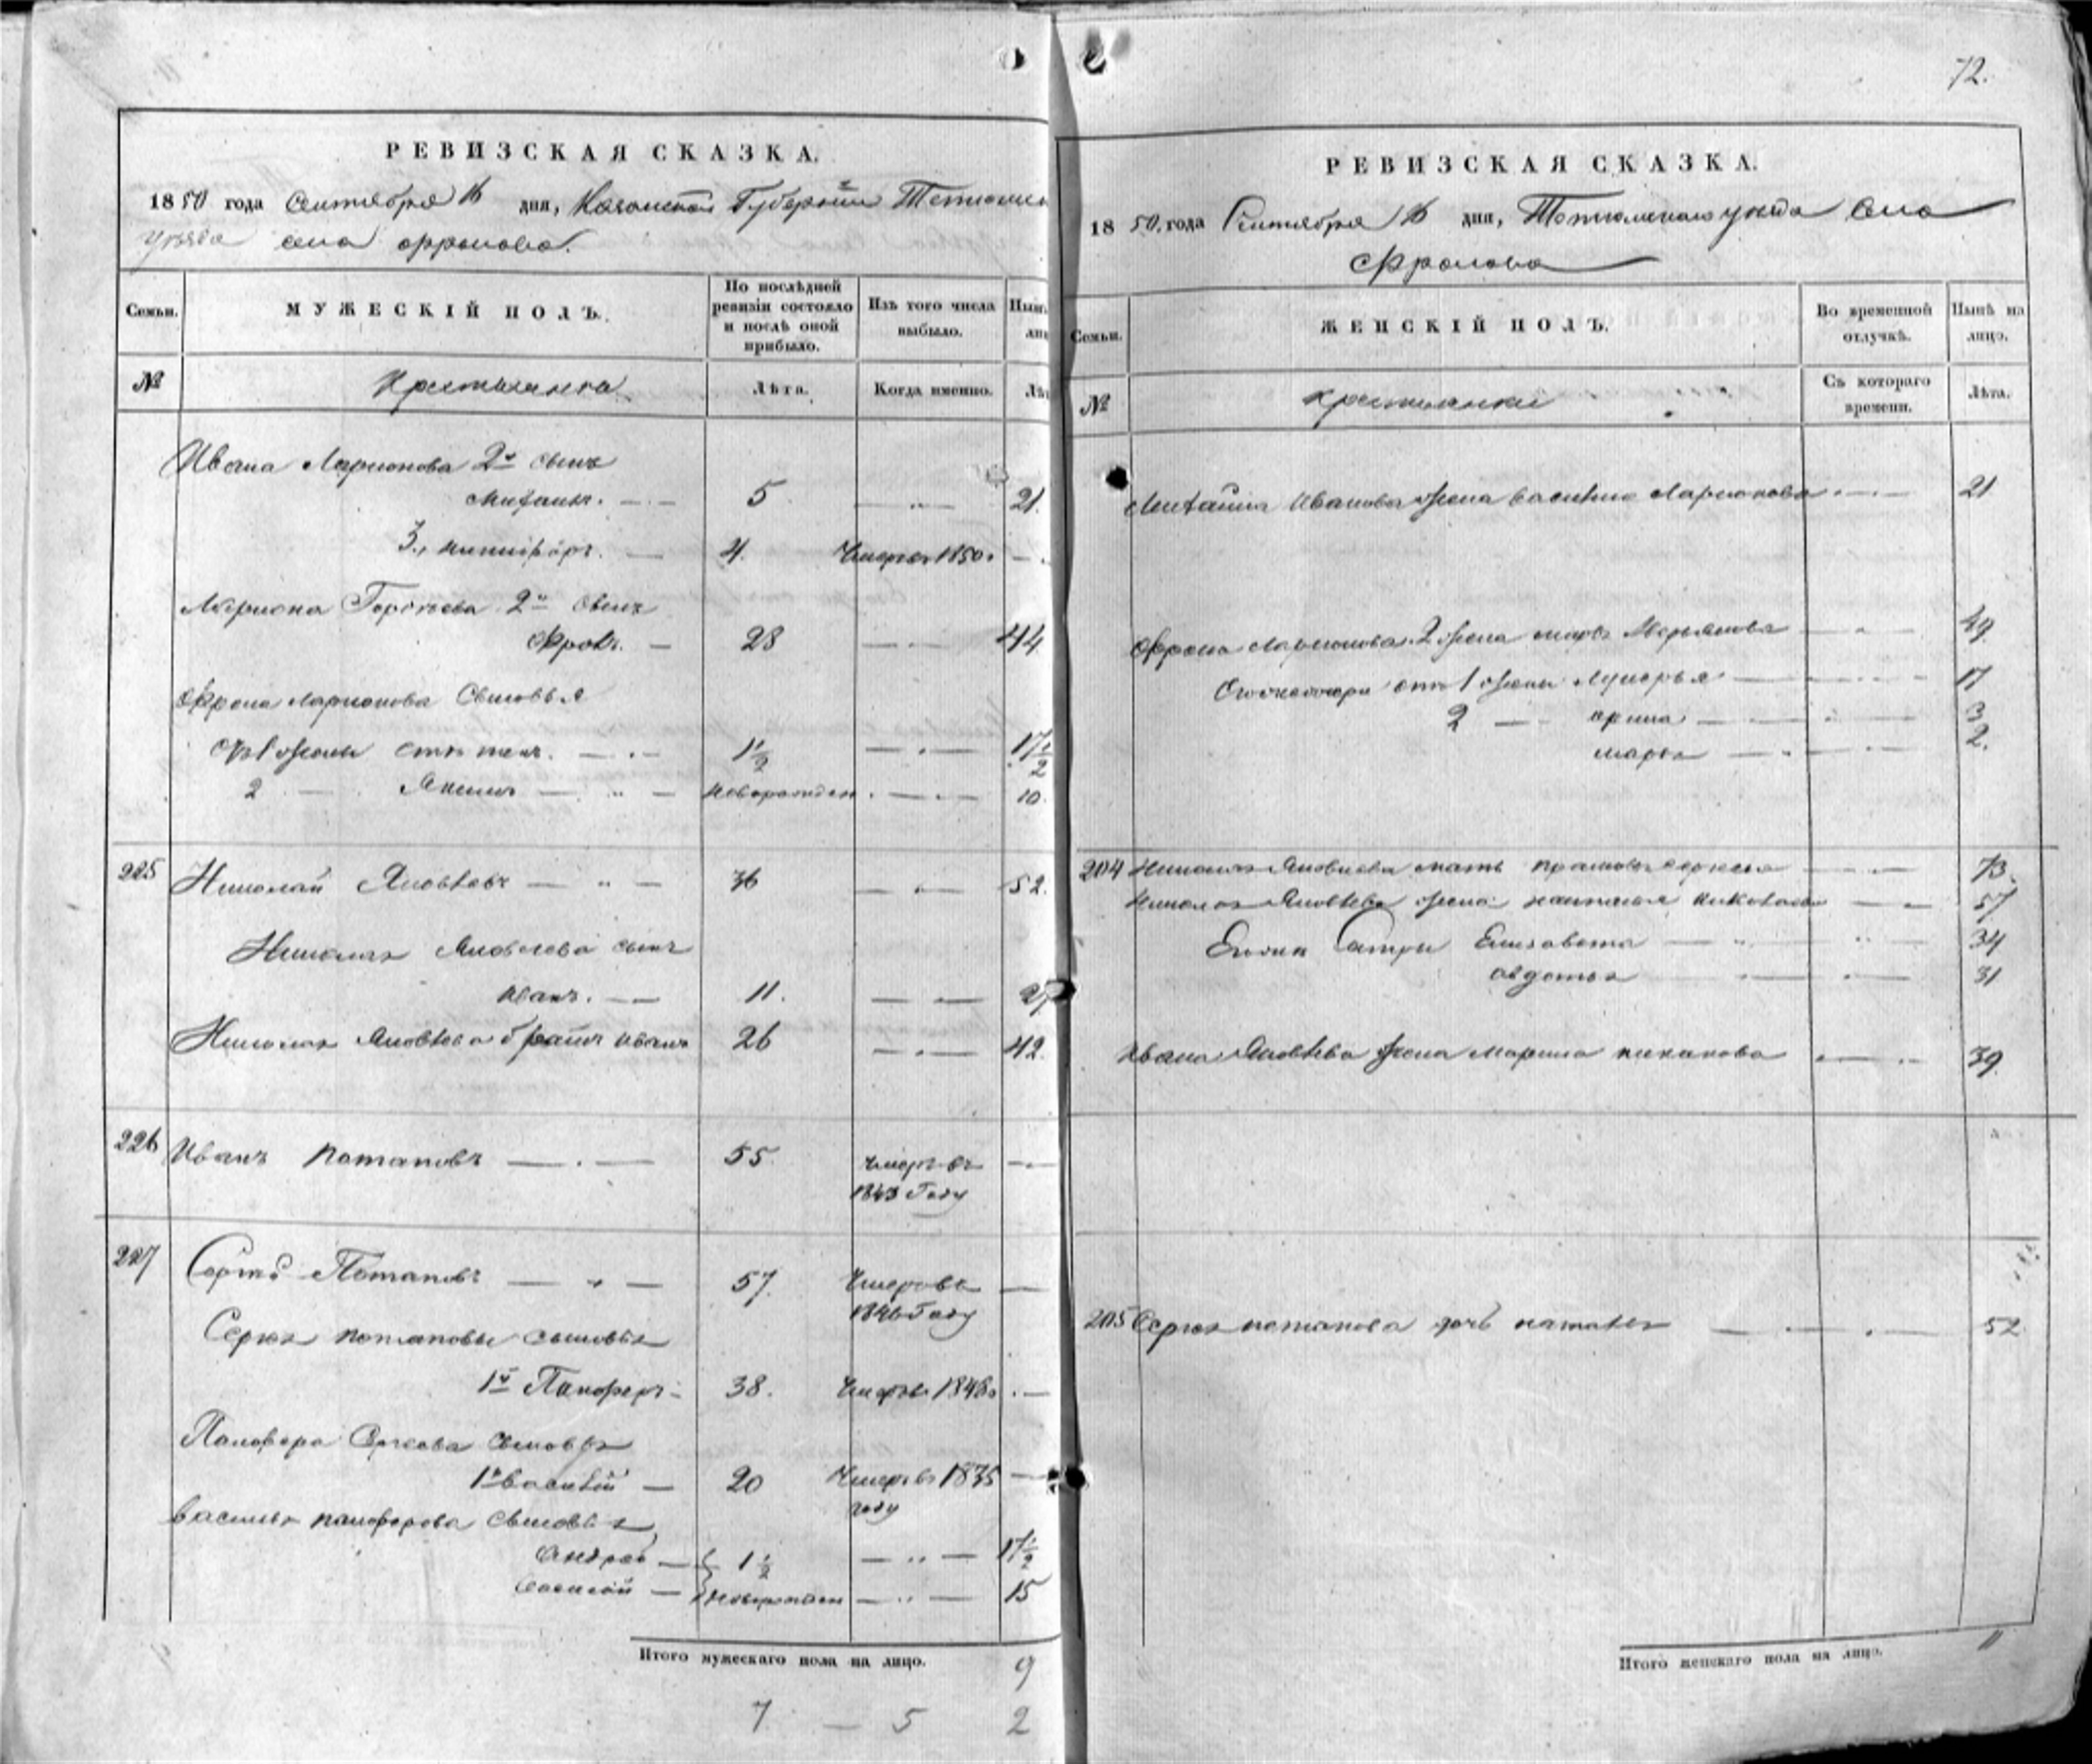 72.
РЕВИЗСКАЯ СКАЗКА.
1850 года Сентября 16 дня, Казанской Губернии Тетюшск
уезда села Фролова.
Семьи.
МУЖЕСКІЙ ПОЛЪ.
По послѣдней ревизіи состояло и послѣ оной прибыло.
Изъ того числа выбыло.
Нын
лиц
№
Крестьяне
Лѣта.
Когда именно.
Лѣт
Ивана Ларионова 2й сынъ
5 21.
3., Никифоръ. 4. Умеръ 1850.
Лариона 2й сынъ
Фролъ. 28 44
Фрола Ларионова Сыновья
От 1 жены 1½ 17½
2 Якимъ новорожден 10.
225 Николай Яковлевъ 36 52.
Николая Яковлева сынъ
Иванъ. 11. 27
Николая Яковлева братъ Иванъ 26 42.
226 Иванъ Потаповъ 55. умеръ въ
1843 Году
227 Сергей Потаповъ 57. Умеръ въ
1846 Году
Сергея Потапова сыновья
1й Панферъ 38. Умеръ 1848
Панфера Сергеева сыновья
1й Василий 20 Умеръ въ 1835
году
Василья Панферова сыновья
Андрей 1½ 17½
Василий новорожден 15
Итого мужескаго пола на лицо. 9
7 — 5 2
РЕВИЗСКАЯ СКАЗКА.
1850 года Сентября 16 дня, Тетюшскаго уезда Села
Фролова
Семьи.
ЖЕНСКІЙ ПОЛЪ.
Во временной отлучкѣ.
Нынѣ на лицо.
№
Крестьянки
Съ котораго времени.
Лѣта.
Ивановна жена Ларионова 21
Фрола Ларионова 2 жена Марья 49
от 1 жены Лукерья 17
2 Ирина 3
Марья 2.
204 Николая Яковлева мать 73.
Николая Яковлева жена Наталья 57
Елизавета 34
Авдотья 31
Ивана Яковлева жена Марина 39.
205 Сергея Потапова дочь Наталья 52
Итого женскаго пола на лицо. 11